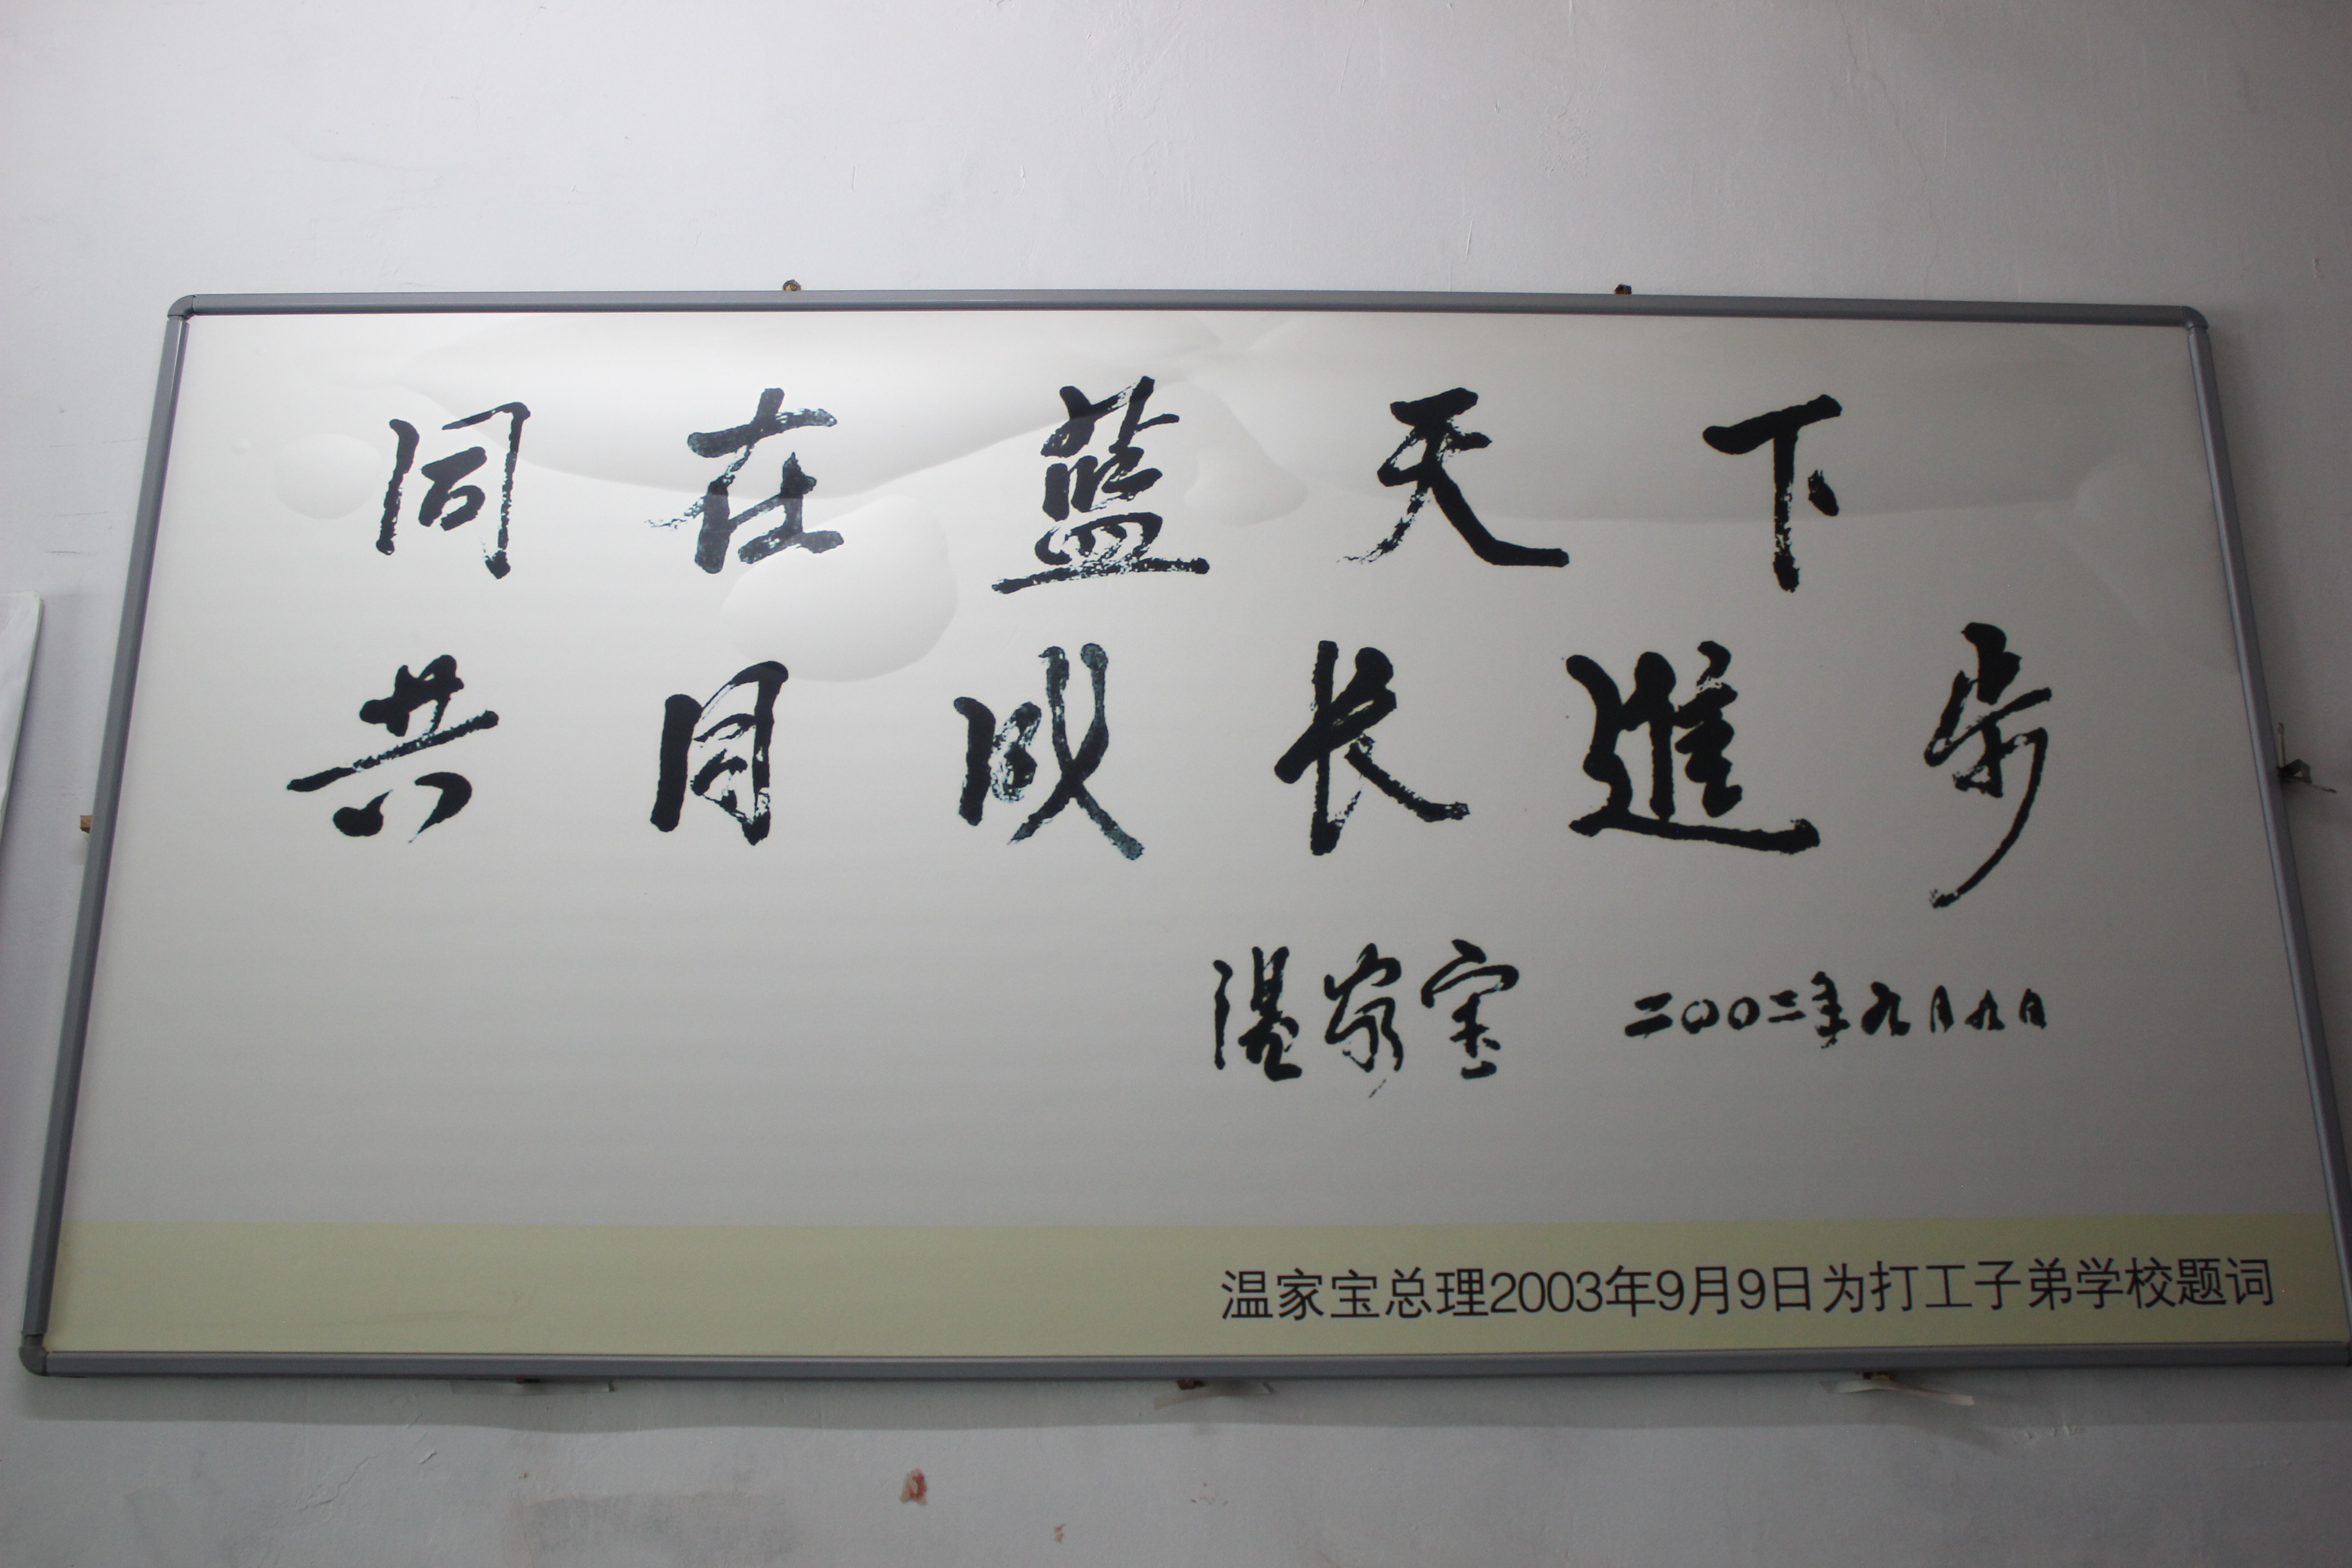 同在蓝天下
共同成长進步
温家宝 二〇〇三年九月九日
温家宝总理2003年9月9日为打工子弟学校题词